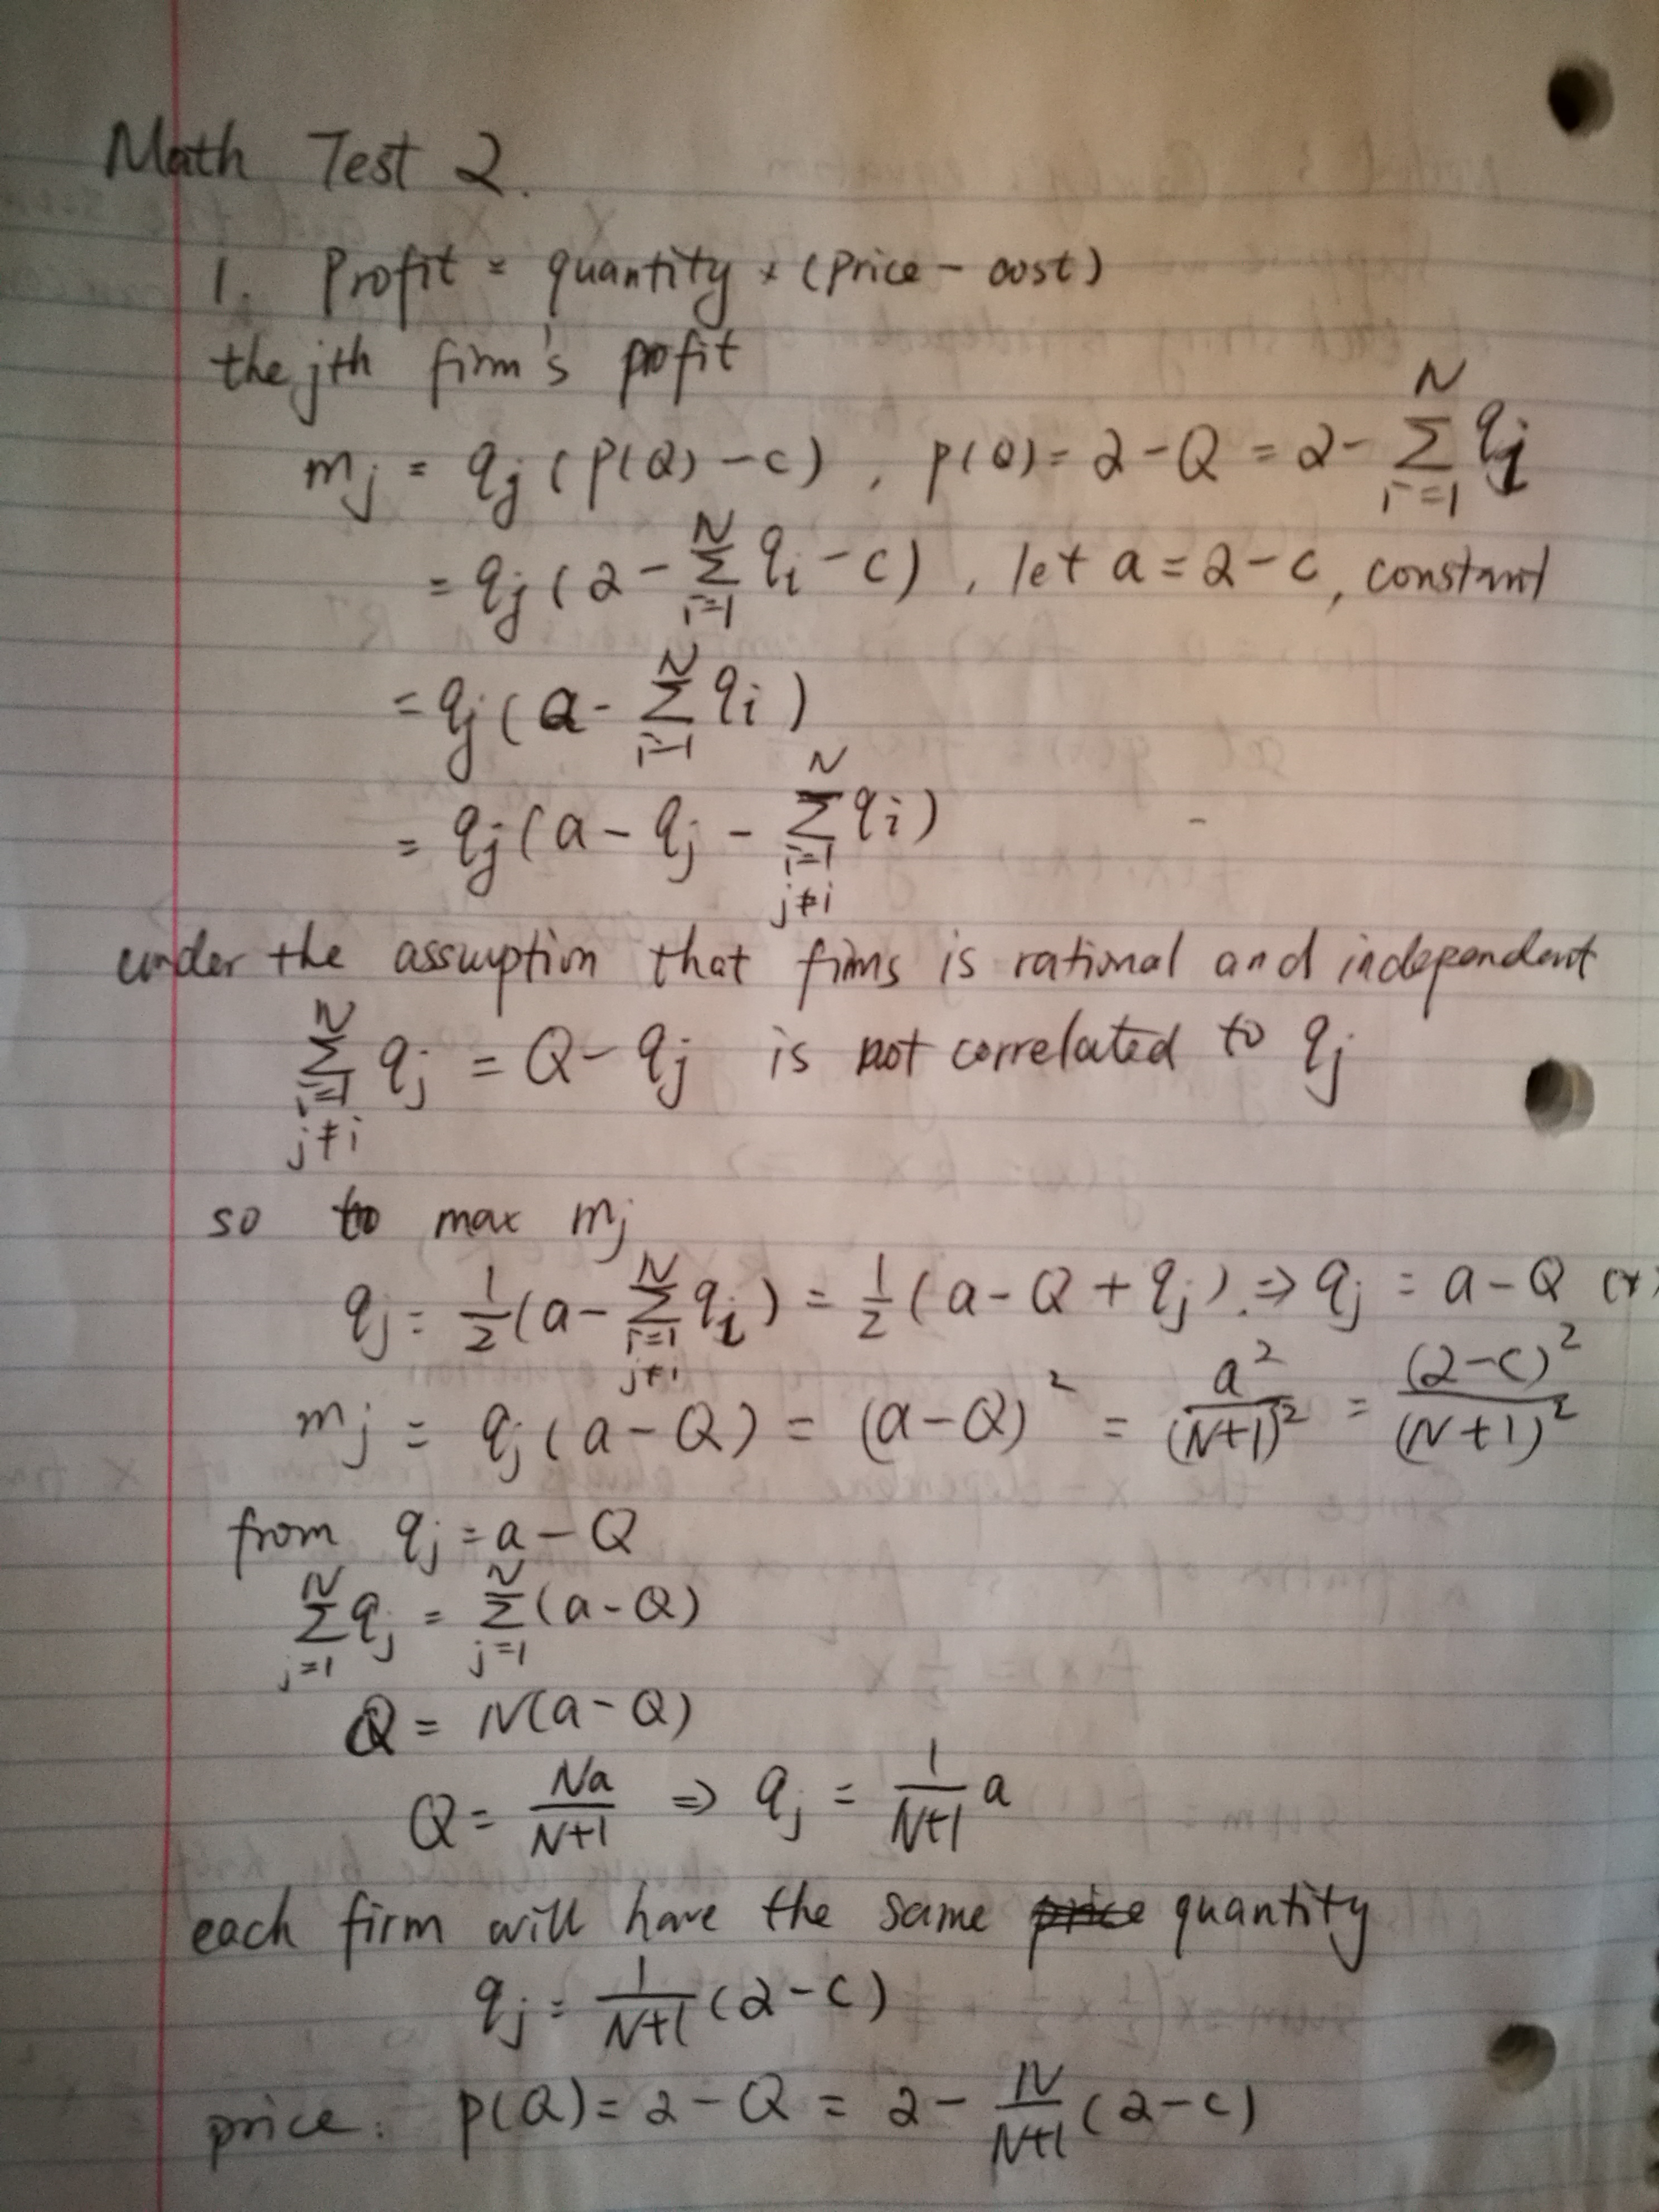 Math Test 2.
1. Profit = quantity × (price - cost)
the jth firm's profit
m_j = q_j (p(Q) - c), p(Q) = 2 - Q = 2 - Σ_{i=1}^{N} q_i
= q_j (2 - Σ_{i=1}^{N} q_i - c), let a = 2 - c, constant
= q_j (a - Σ_{i=1}^{N} q_i)
= q_j (a - q_j - Σ_{i=1, j≠i}^{N} q_i)
under the assumption that firms is rational and independent
Σ_{i=1, j≠i}^{N} q_j = Q - q_j is not correlated to q_j
so to max m_j
q_j = 1/2 (a - Σ_{i=1, j≠i}^{N} q_i) = 1/2 (a - Q + q_j). ⇒ q_j = a - Q
m_j = q_j (a - Q) = (a - Q)^2 = a^2/(N+1)^2 = (2-c)^2/(N+1)^2
from q_j = a - Q
Σ_{j=1}^{N} q_j = Σ_{j=1}^{N} (a - Q)
Q = N(a - Q)
Q = Na/(N+1) ⇒ q_j = 1/(N+1) a
each firm will have the same quantity
q_j = 1/(N+1) (2 - c)
price: p(Q) = 2 - Q = 2 - N/(N+1) (2 - c)